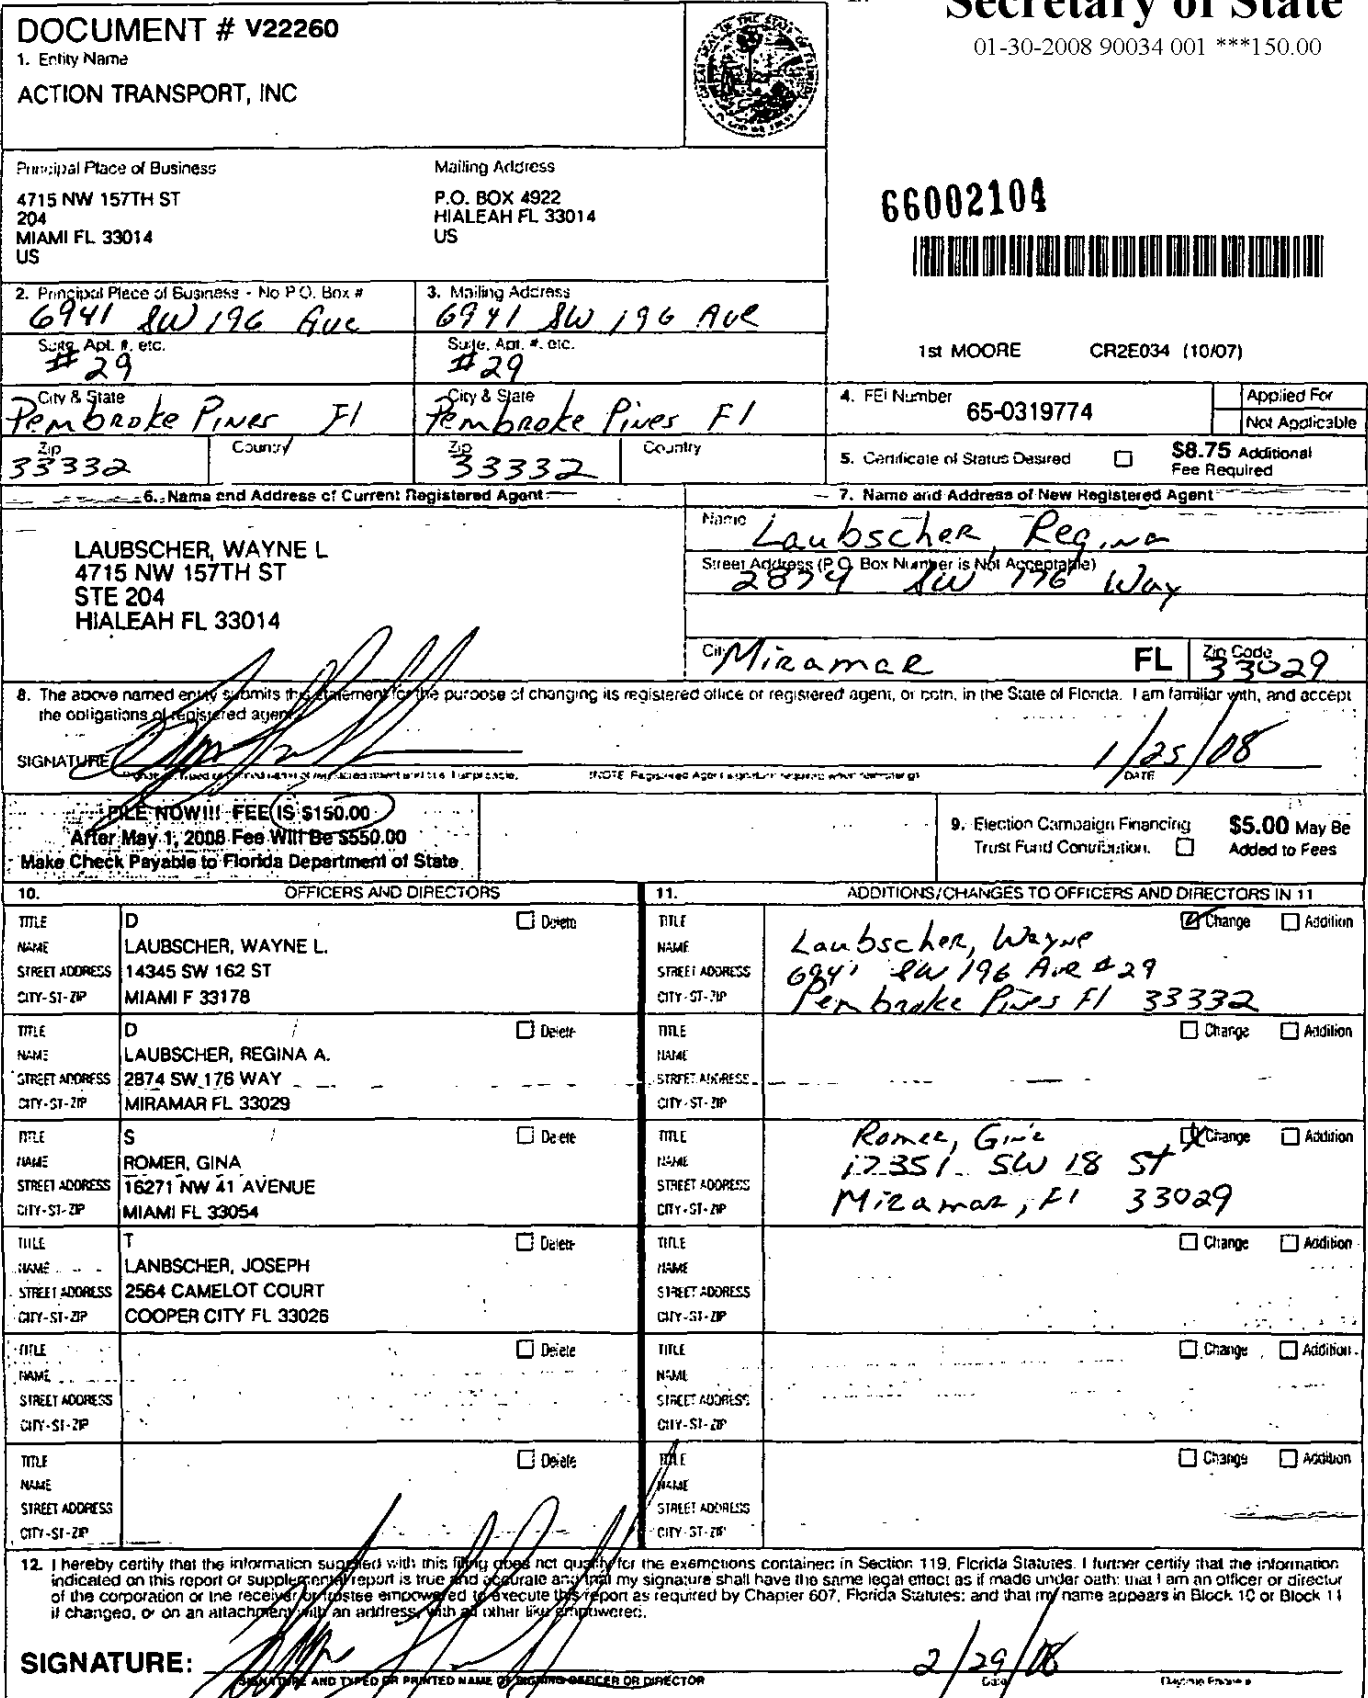 Secretary of State
01-30-2008 90034 001 ***150.00
DOCUMENT # V22260
1. Entity Name
ACTION TRANSPORT, INC
Principal Place of Business
4715 NW 157TH ST
204
MIAMI FL 33014
US
Mailing Address
P.O. BOX 4922
HIALEAH FL 33014
US
66002104
2. Principal Place of Business - No P.O. Box #
6941 SW 196 Ave
Suite, Apt. #, etc.
#29
City & State
Pembroke Pines Fl
Zip
33332
Country
3. Mailing Address
6941 SW 196 Ave
Suite, Apt. #, etc.
#29
City & State
Pembroke Pines Fl
Zip
33332
Country
1st MOORE CR2E034 (10/07)
4. FEI Number
65-0319774
Applied For
Not Applicable
5. Certificate of Status Desired
$8.75 Additional
Fee Required
6. Name and Address of Current Registered Agent
LAUBSCHER, WAYNE L
4715 NW 157TH ST
STE 204
HIALEAH FL 33014
7. Name and Address of New Registered Agent
Name Laubscher, Regina
Street Address (P.O. Box Number is Not Acceptable)
2874 SW 176 Way
City Miramar FL Zip Code 33029
8. The above named entity submits this statement for the purpose of changing its registered office or registered agent, or both, in the State of Florida. I am familiar with, and accept
the obligations of registered agent.
SIGNATURE
1/25/08
DATE
FILE NOW!!! FEE IS $150.00
After May 1, 2008 Fee Will Be $550.00
Make Check Payable to Florida Department of State
9. Election Campaign Financing
Trust Fund Contribution.
$5.00 May Be
Added to Fees
10. OFFICERS AND DIRECTORS
TITLE D Delete
NAME LAUBSCHER, WAYNE L.
STREET ADDRESS 14345 SW 162 ST
CITY-ST-ZIP MIAMI F 33178
TITLE D Delete
NAME LAUBSCHER, REGINA A.
STREET ADDRESS 2874 SW 176 WAY
CITY-ST-ZIP MIRAMAR FL 33029
TITLE S Delete
NAME ROMER, GINA
STREET ADDRESS 16271 NW 41 AVENUE
CITY-ST-ZIP MIAMI FL 33054
TITLE T Delete
NAME LANBSCHER, JOSEPH
STREET ADDRESS 2564 CAMELOT COURT
CITY-ST-ZIP COOPER CITY FL 33026
TITLE Delete
NAME
STREET ADDRESS
CITY-ST-ZIP
TITLE Delete
NAME
STREET ADDRESS
CITY-ST-ZIP
11. ADDITIONS/CHANGES TO OFFICERS AND DIRECTORS IN 11
TITLE Change Addition
NAME Laubscher, Wayne
STREET ADDRESS 6941 SW 196 Ave #29
CITY-ST-ZIP Pembroke Pines Fl 33332
TITLE Change Addition
NAME
STREET ADDRESS
CITY-ST-ZIP
TITLE Romer, Change Addition
NAME 17351 SW 18 St
STREET ADDRESS
CITY-ST-ZIP Miramar, Fl 33029
TITLE Change Addition
NAME
STREET ADDRESS
CITY-ST-ZIP
TITLE Change Addition
NAME
STREET ADDRESS
CITY-ST-ZIP
TITLE Change Addition
NAME
STREET ADDRESS
CITY-ST-ZIP
12. I hereby certify that the information supplied with this filing does not qualify for the exemptions contained in Section 119, Florida Statutes. I further certify that the information
indicated on this report or supplemental report is true and accurate and that my signature shall have the same legal effect as if made under oath; that I am an officer or director
of the corporation or the receiver or trustee empowered to execute this report as required by Chapter 607, Florida Statutes; and that my name appears in Block 10 or Block 11
if changed, or on an attachment with an address, with all other like empowered.
SIGNATURE:
SIGNATURE AND TYPED OR PRINTED NAME OF SIGNING OFFICER OR DIRECTOR
2/29/08
Date
Daytime Phone #